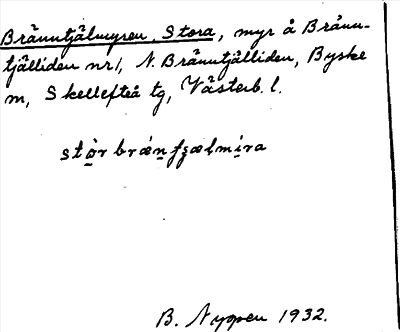 Bränntjälmyren, Stora, myr å Bränn-
tjälliden nr 1, N. Bränntjälliden, Byske
m, Skellefteå tg, Västerb. l.
stò̱r brǽṉ fʒælmi̱ra
B. Nygren 1932.